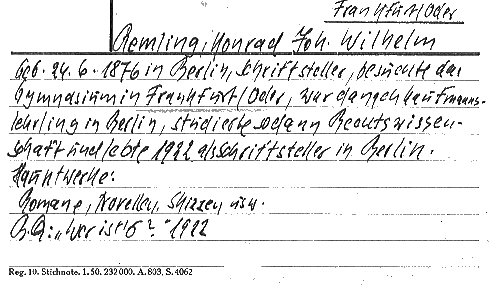 Frankfurt/Oder
Remling, Konrad Joh. Wilhelm
Geb. 24.6.1876 in Berlin, Schriftsteller, besuchte das
Gymnasium in Frankfurt/Oder, war danach Kaufmanns-
lehrling in Berlin, studierte sodann Rechtswissen-
schaft und lebte 1922 als Schriftsteller in Berlin.
Hauptwerke:
Romane, Novellen, Skizzen usw.
B.Q.: „Wer ist's?" 1922
Reg. 10. Stichnote. 1. 50. 232000. A. 803, S. 4062